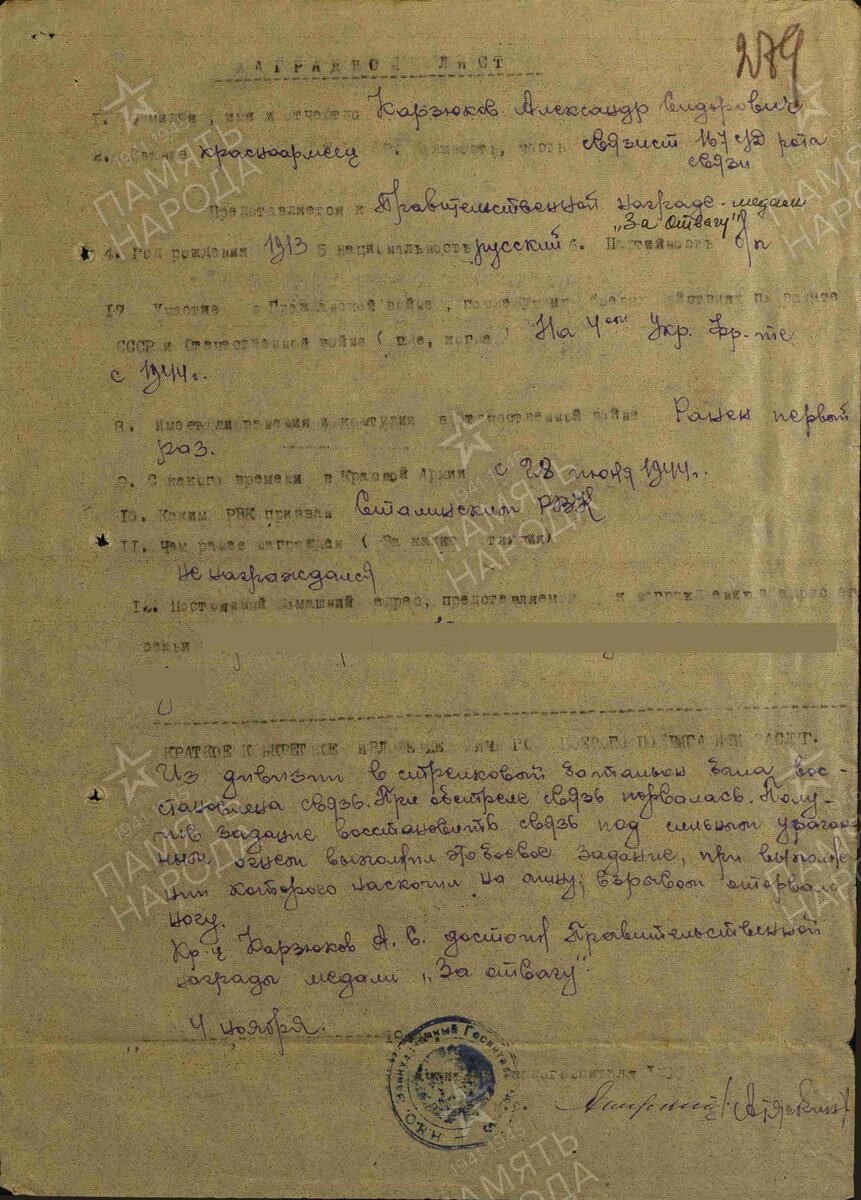 279
НАГРАДНОЙ ЛИСТ
1. Фамилия, имя и отчество Карзюков Александр Сидорович
2. Звание красноармеец 3. Должность, часть связист 167 СД рота
связи
Представляется к Правительственной награде - медали
"За Отвагу"
4. Год рождения 1913 5 национальность русский 6. Партийность б/п
17 Участие в Гражданской войне, последующих боевых действиях по защите
СССР и Отечественной войне (где, когда) На 4ом Укр. Фр-те
с 1944 г.
8. Имеет ли ранения и контузии в отечественной войне Ранен первый
раз.
9. С какого времени в Красной Армии с 28 июня 1944 г.
10. Каким РВК призван Сталинским РВК
11. Чем ранее награжден (За какие отличия)
не награждался
12. Постоянный домашний адрес, представляемого к награждению и адрес его
семьи
КРАТКОЕ КОНКРЕТНОЕ ИЗЛОЖЕНИЕ ЛИЧНОГО БОЕВОГО ПОДВИГА ИЛИ ЗАСЛУГ.
Из дивизии в стрелковый батальон была вос-
становлена связь. При обстреле связь порвалась. Полу-
чив задание восстановить связь под сильным ураган-
ным огнем выполнил это боевое задание, при выполне-
нии которого наскочил на мину, взрывом оторвало
ногу.
Кр-ц Карзюков А. С. достоин Правительственной
награды медали "За отвагу".
4 ноября. 19
Эвакуационный Госпиталь
Н.К.О.
ПАМЯТЬ НАРОДА
1941-1945